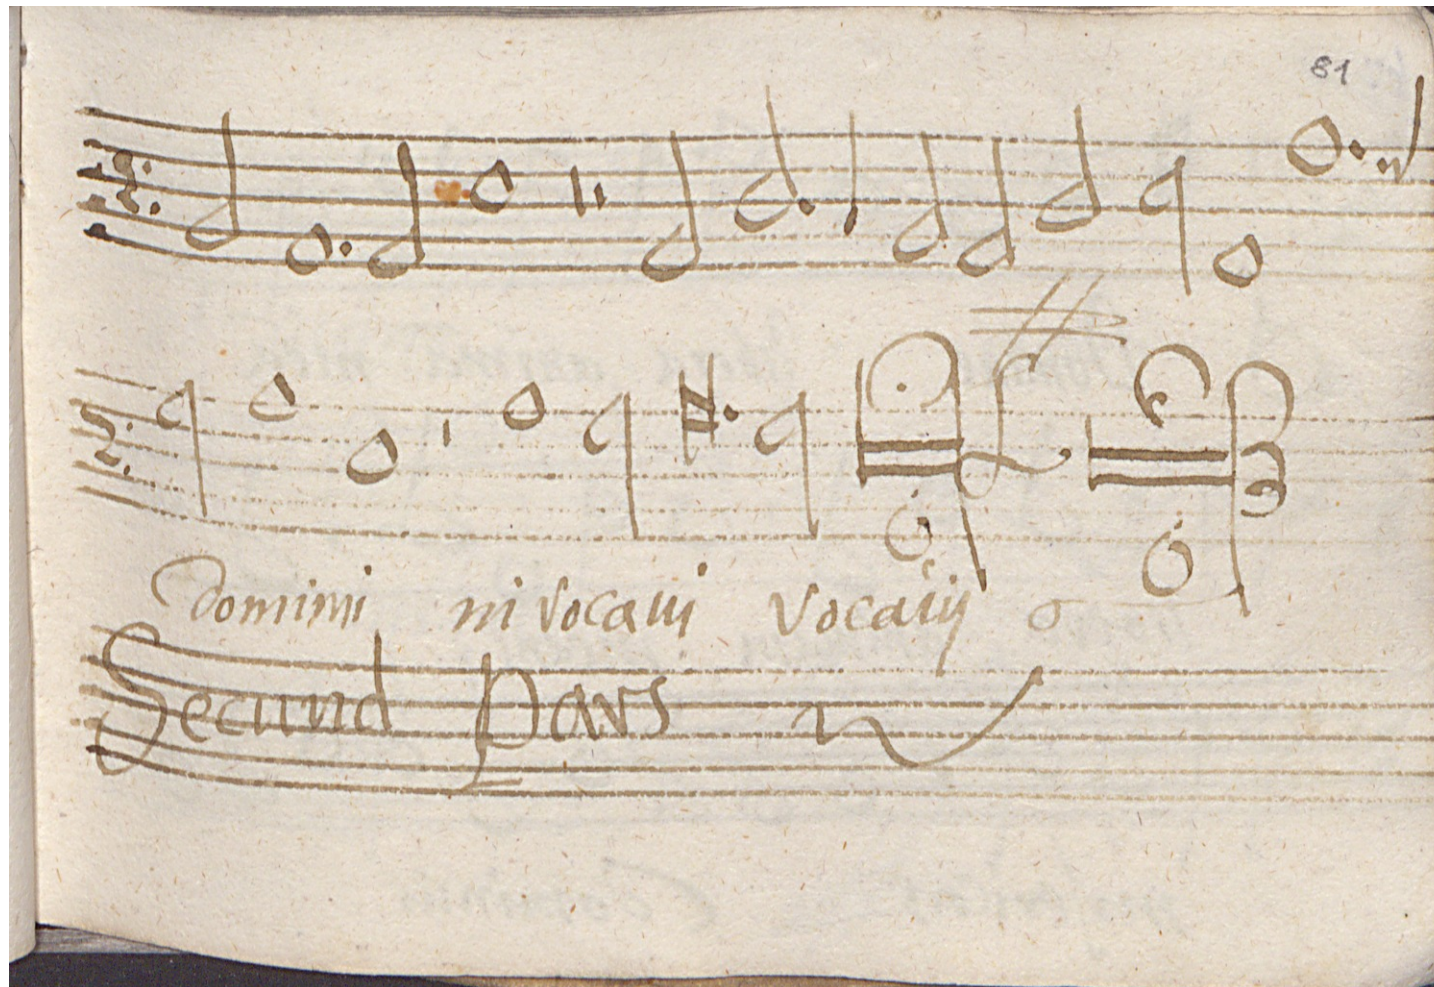 81
domini nivocaui Vocaiij
Secund Pars